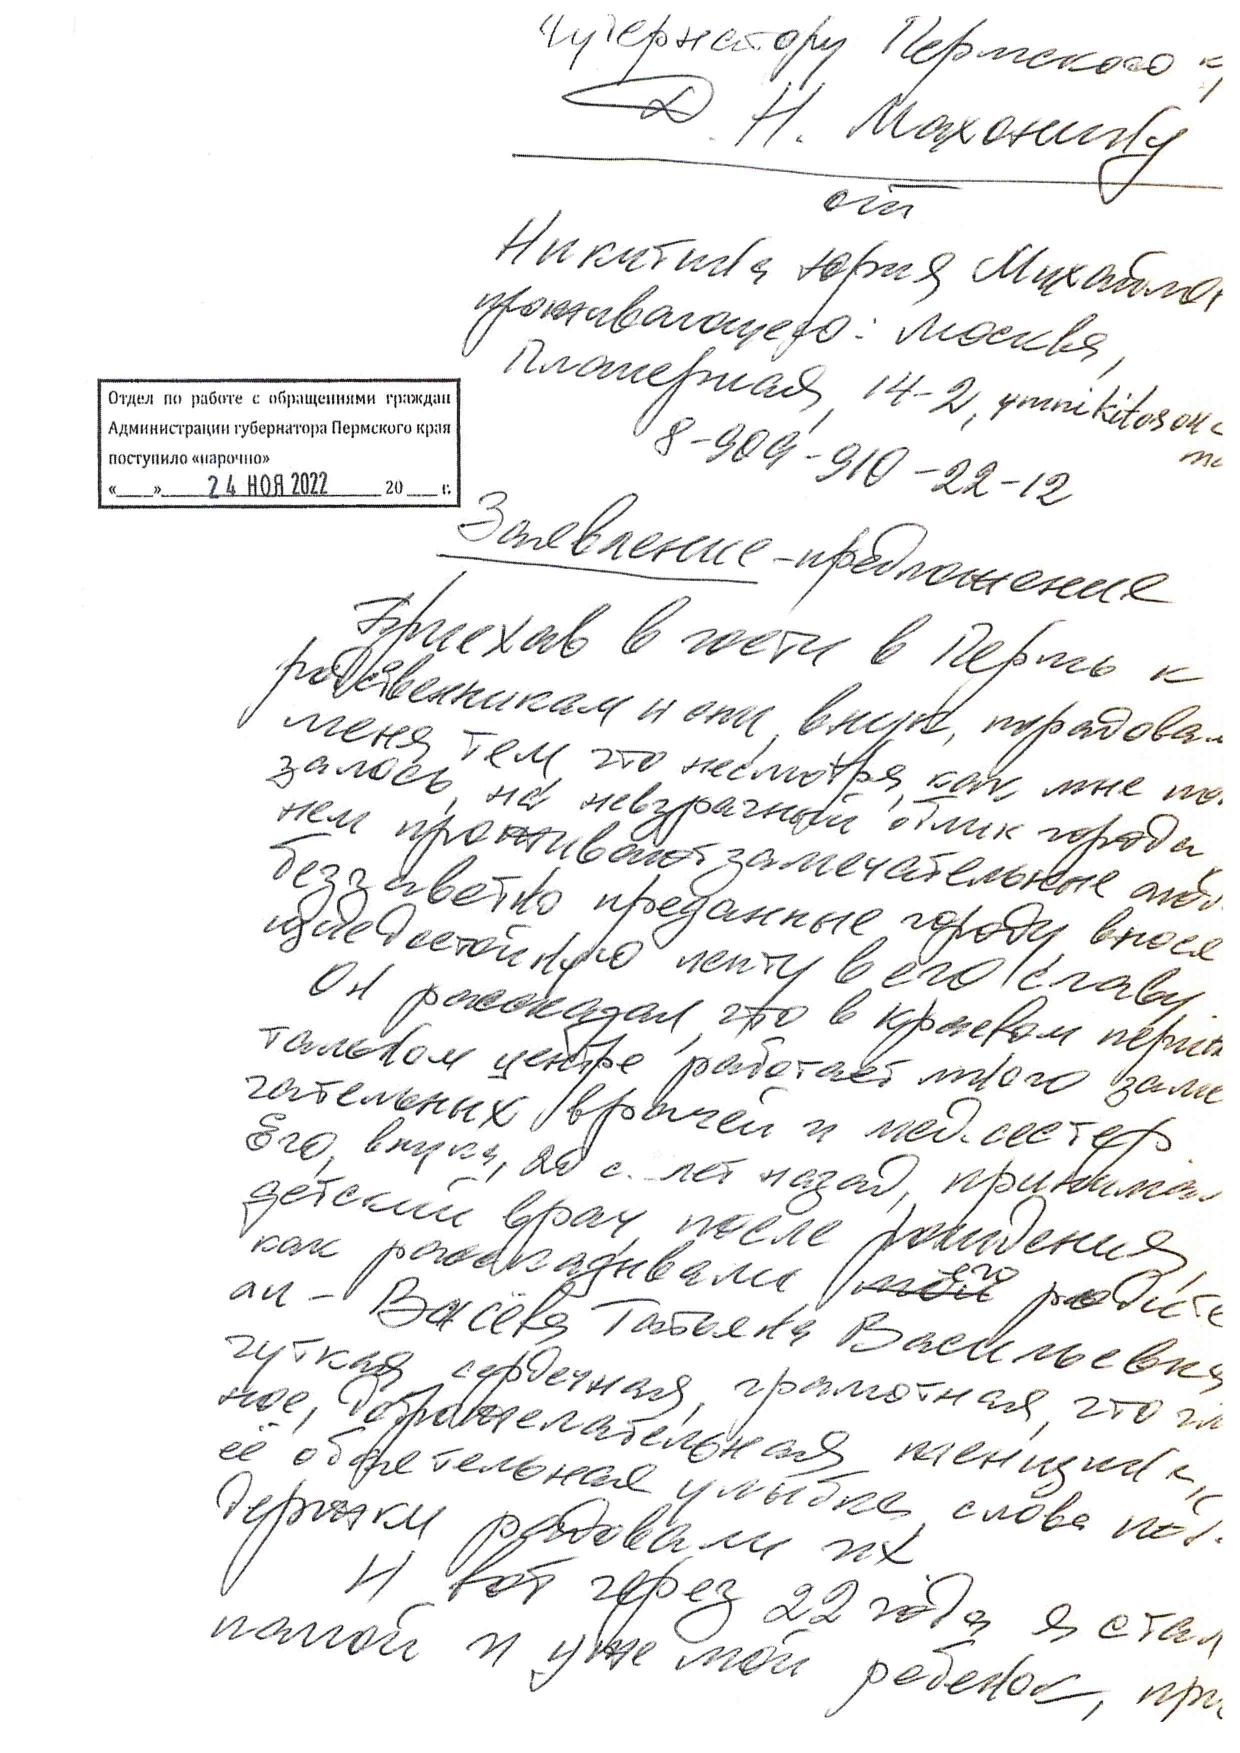 Губернатору Пермского к
Д. Н. Махонину
от
Никитина Юрия Михайлов
проживающего: Москва,
Планерная, 14-2, ymnikitos
8-909-910-22-12
Отдел по работе с обращениями граждан
Администрации губернатора Пермского края
поступило «нарочно»
«___»____24 НОЯ 2022____20___г.
Заявление-предложение
Приехав в гости в Пермь к
родственникам и они, внук, порадовал
меня тем что несмотря, как мне пока
залось, на невзрачный облик города,
нем проживают замечательные люд
беззаветно преданные городу, внося
щие достойную лепту в его славу.
Он рассказал, что в краевом перина
тальном центре работает много заме
чательных врачей и мед. сестер.
Его, внука, 20 с. лет назад, принимал
детский врач, после рождения,
как рассказывали его родите
ли – Васёва Татьяна Васильевна
чуткая, сердечная, грамотная, что гла
ное, доброжелательная женщина,
её обаятельная улыбка, слова под
держки радовали их
И вот через 22 года я стал
папой и уже мой ребенок, при